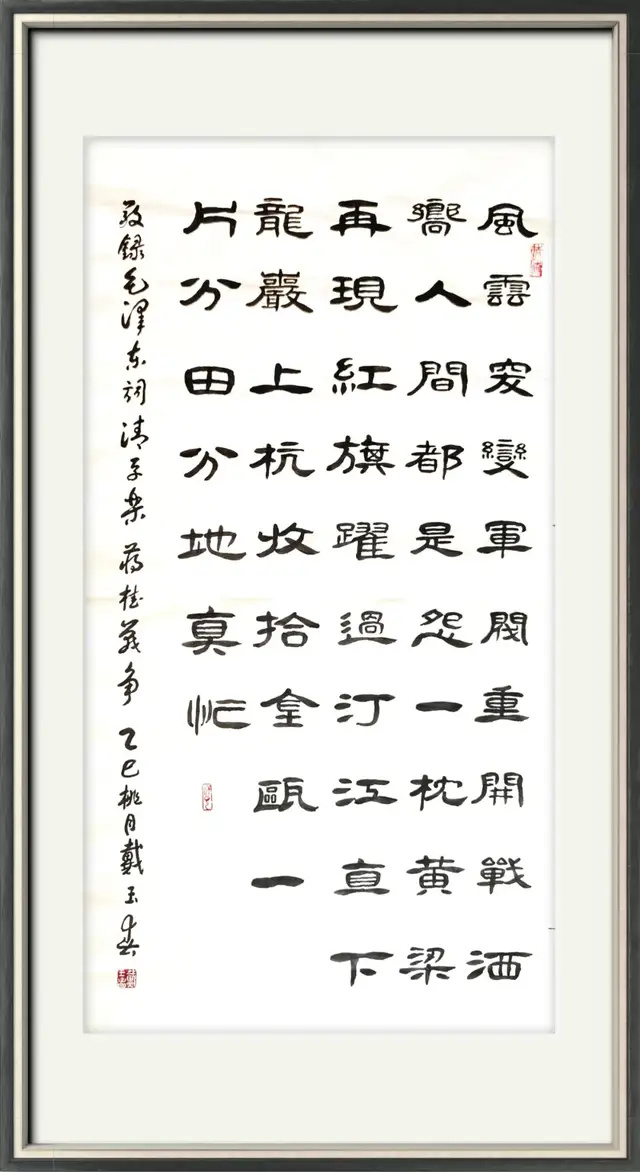 風雲突變軍閥重開戰洒
嚮人間都是怨一枕黄梁
再現紅旗躍過汀江直下
龍巖上杭收拾金甌一
片分田分地真忙
敬録毛泽东詞清平乐 蒋桂战争 乙巳桃月戴玉春